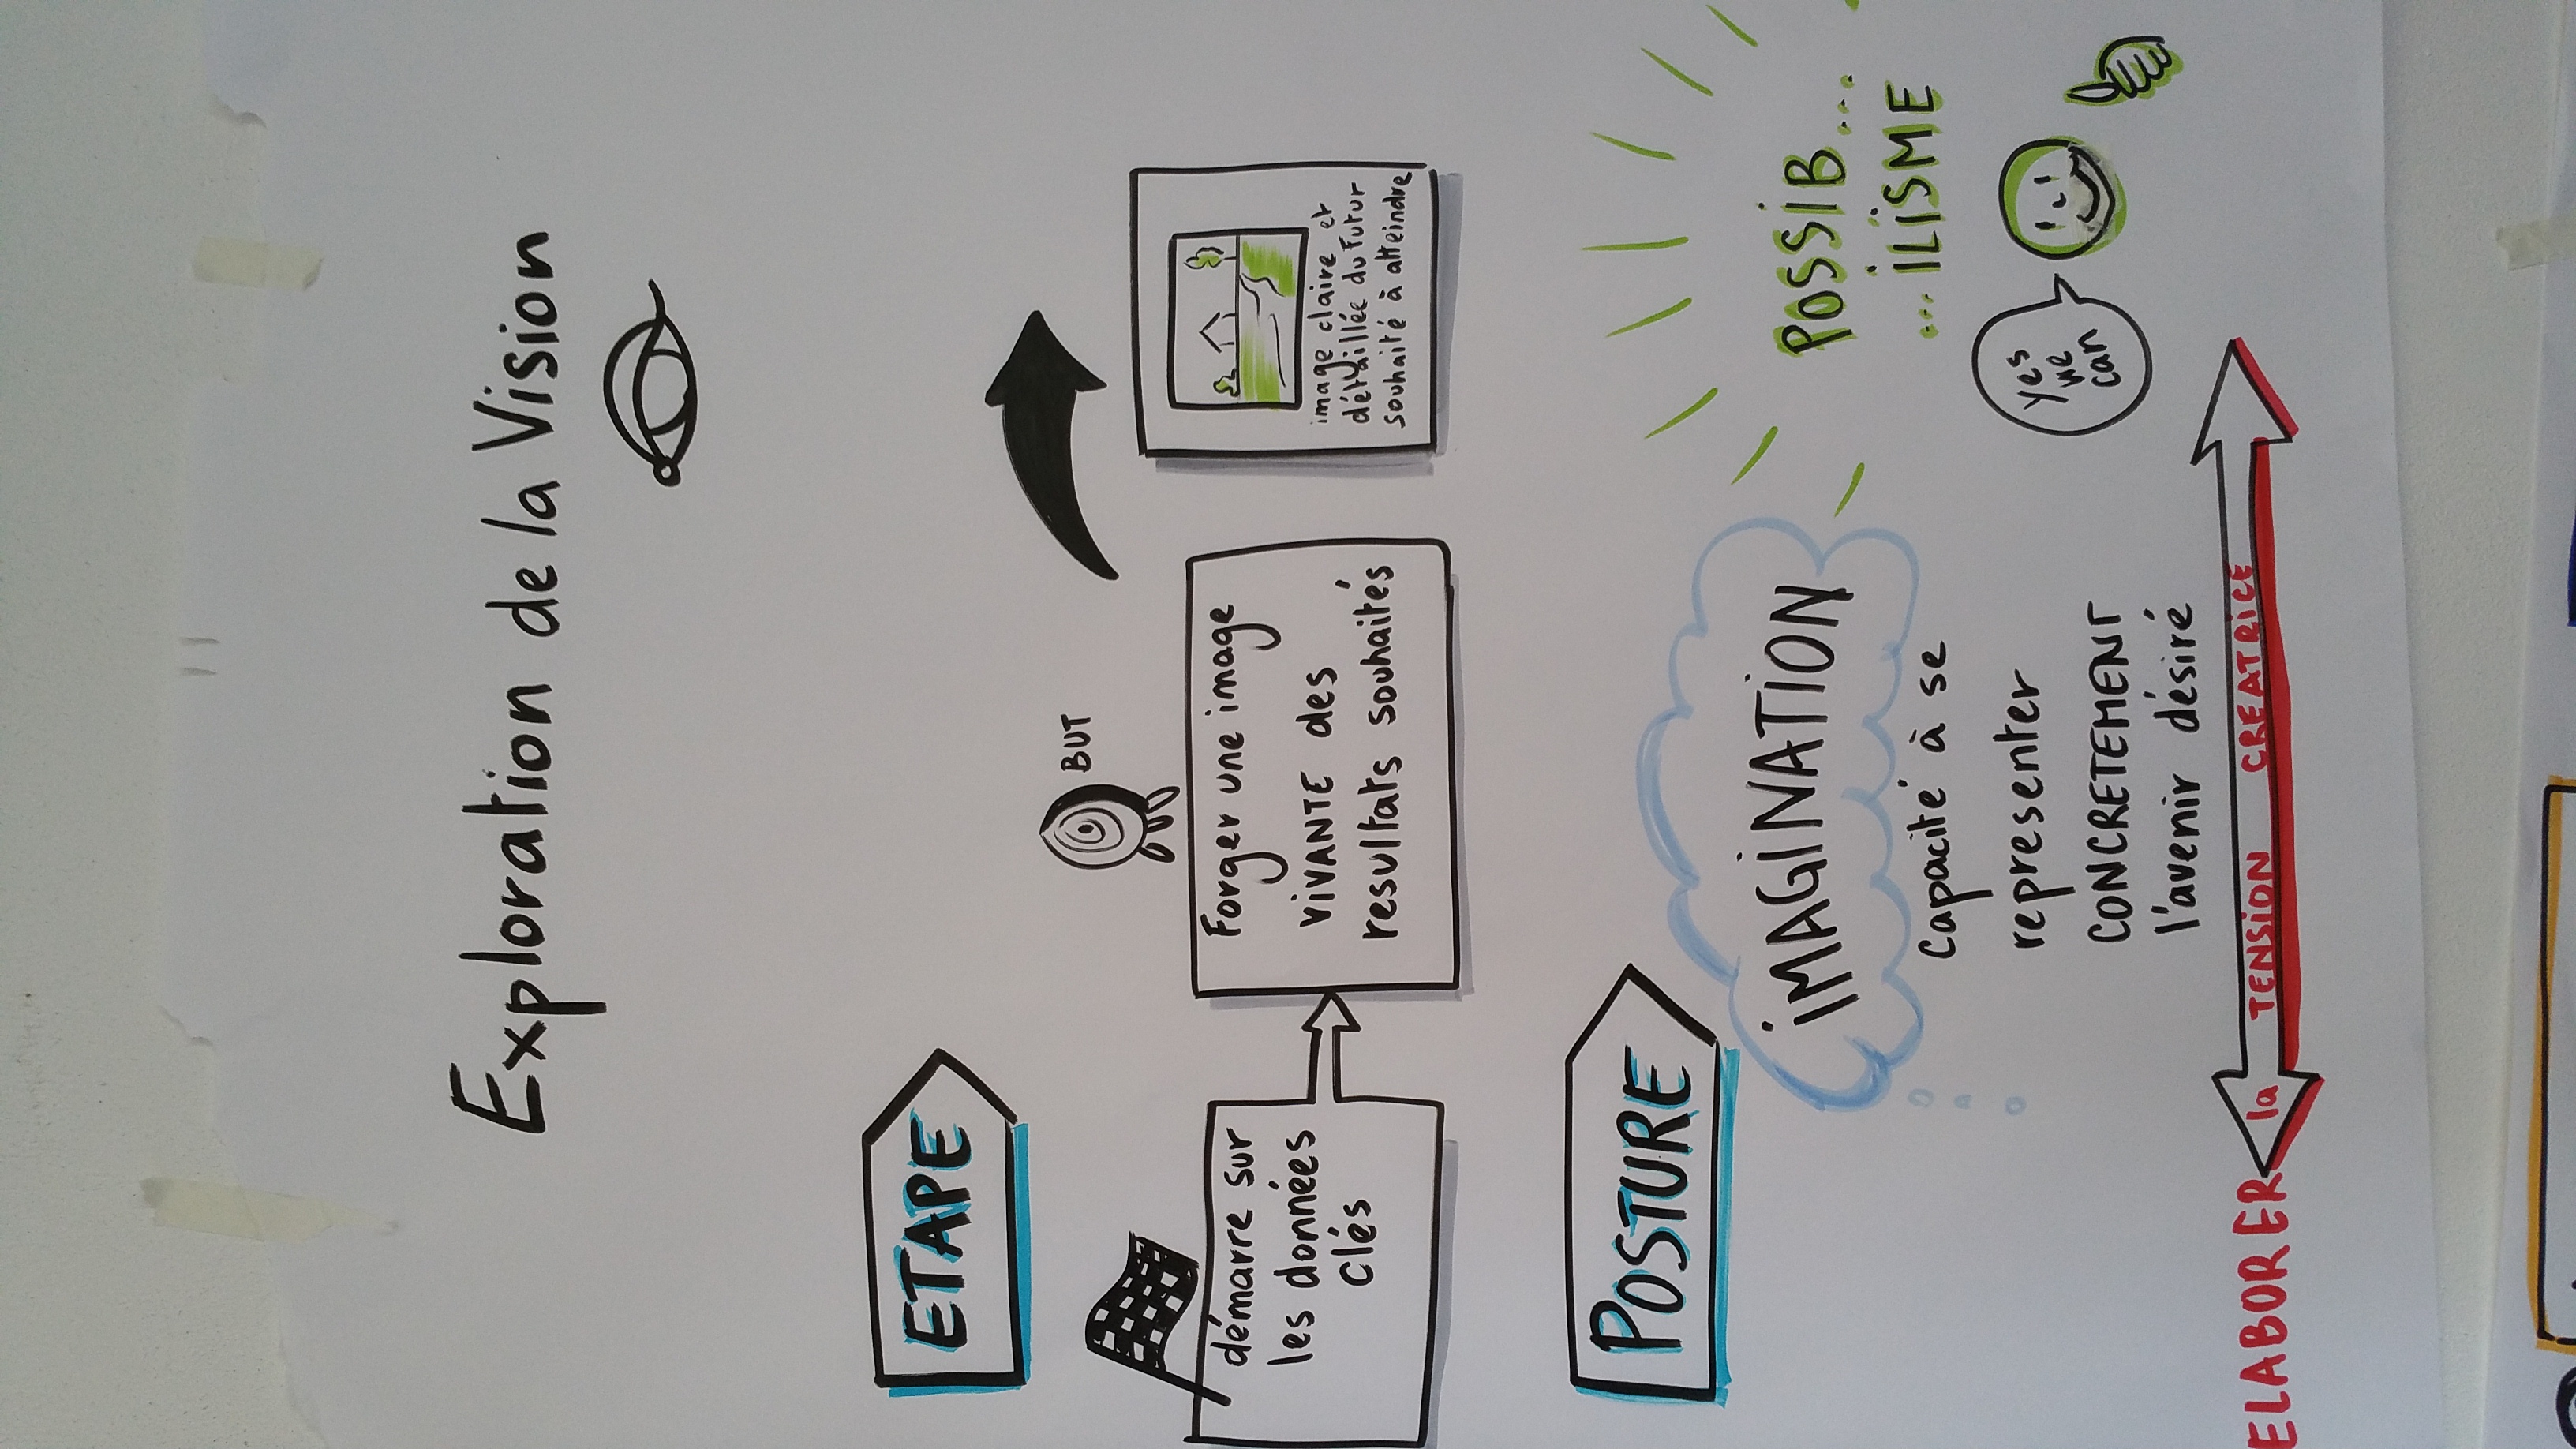 Exploration de la Vision
ETAPE
BUT
démarre sur
les données
clés
Forger une image
VIVANTE des
resultats souhaités
image claire et
détaillée du Futur
souhaité à atteindre
POSTURE
iMAGiNATiON
Capacité à se
representer
CONCRETEMENT
l'avenir désiré
POSSIB....
...iLiSME
Yes
we
can
ELABORER la TENSION CREATRICE